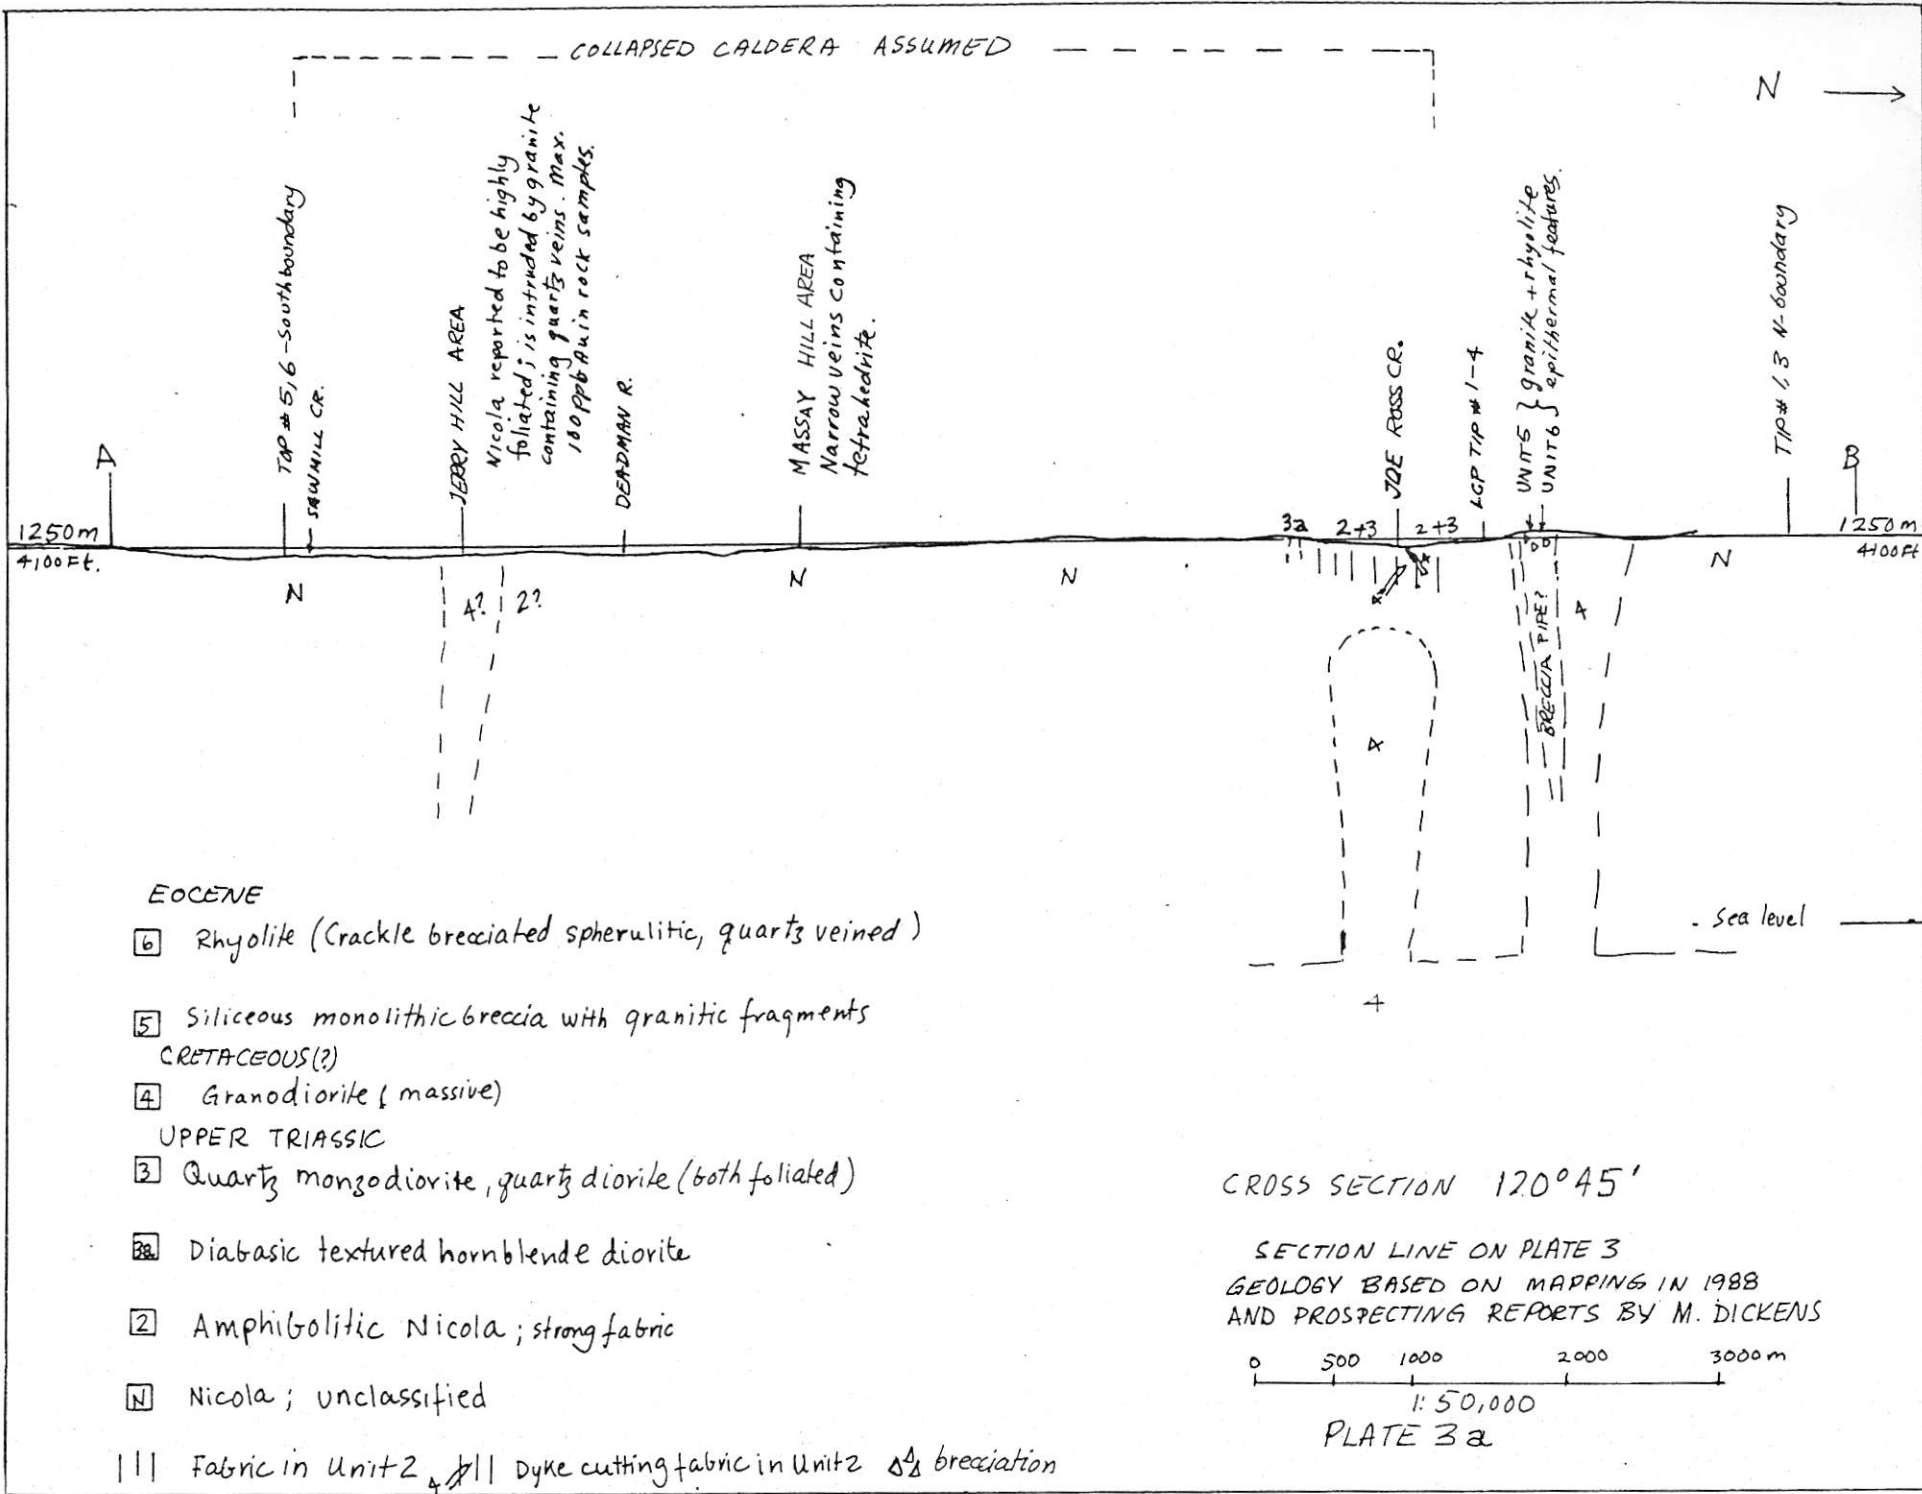 COLLAPSED CALDERA ASSUMED
N
A
TOP # 5,6 - South boundary
SAWMILL CR.
JERRY HILL AREA
Nicola reported to be highly
foliated; is intruded by granite
containing quartz veins. Max.
100 ppb Au in rock samples.
DEADMAN R.
MASSAY HILL AREA
Narrow veins containing
tetrahedrite.
JOE ROSS CR.
LGP TIP # 1-4
UNIT 5 } granite + rhyolite
UNIT 6 } epithermal features.
TIP # 1,3 N-boundary
B
1250m
4100 Ft.
3a 2+3 2+3
1250m
4100 Ft
N
4? 2?
N
N
4
4
BRECCIA PIPE?
4
N
4
Sea level
4
EOCENE
6 Rhyolite (Crackle brecciated spherulitic, quartz veined)
5 Siliceous monolithic breccia with granitic fragments
CRETACEOUS(?)
4 Granodiorite (massive)
UPPER TRIASSIC
3 Quartz monzodiorite, quartz diorite (both foliated)
3a Diabasic textured hornblende diorite
2 Amphibolitic Nicola; strong fabric
N Nicola; unclassified
Fabric in Unit 2 4 Dyke cutting fabric in Unit 2 brecciation
CROSS SECTION 120°45'
SECTION LINE ON PLATE 3
GEOLOGY BASED ON MAPPING IN 1988
AND PROSPECTING REPORTS BY M. DICKENS
0 500 1000 2000 3000m
1:50,000
PLATE 3a